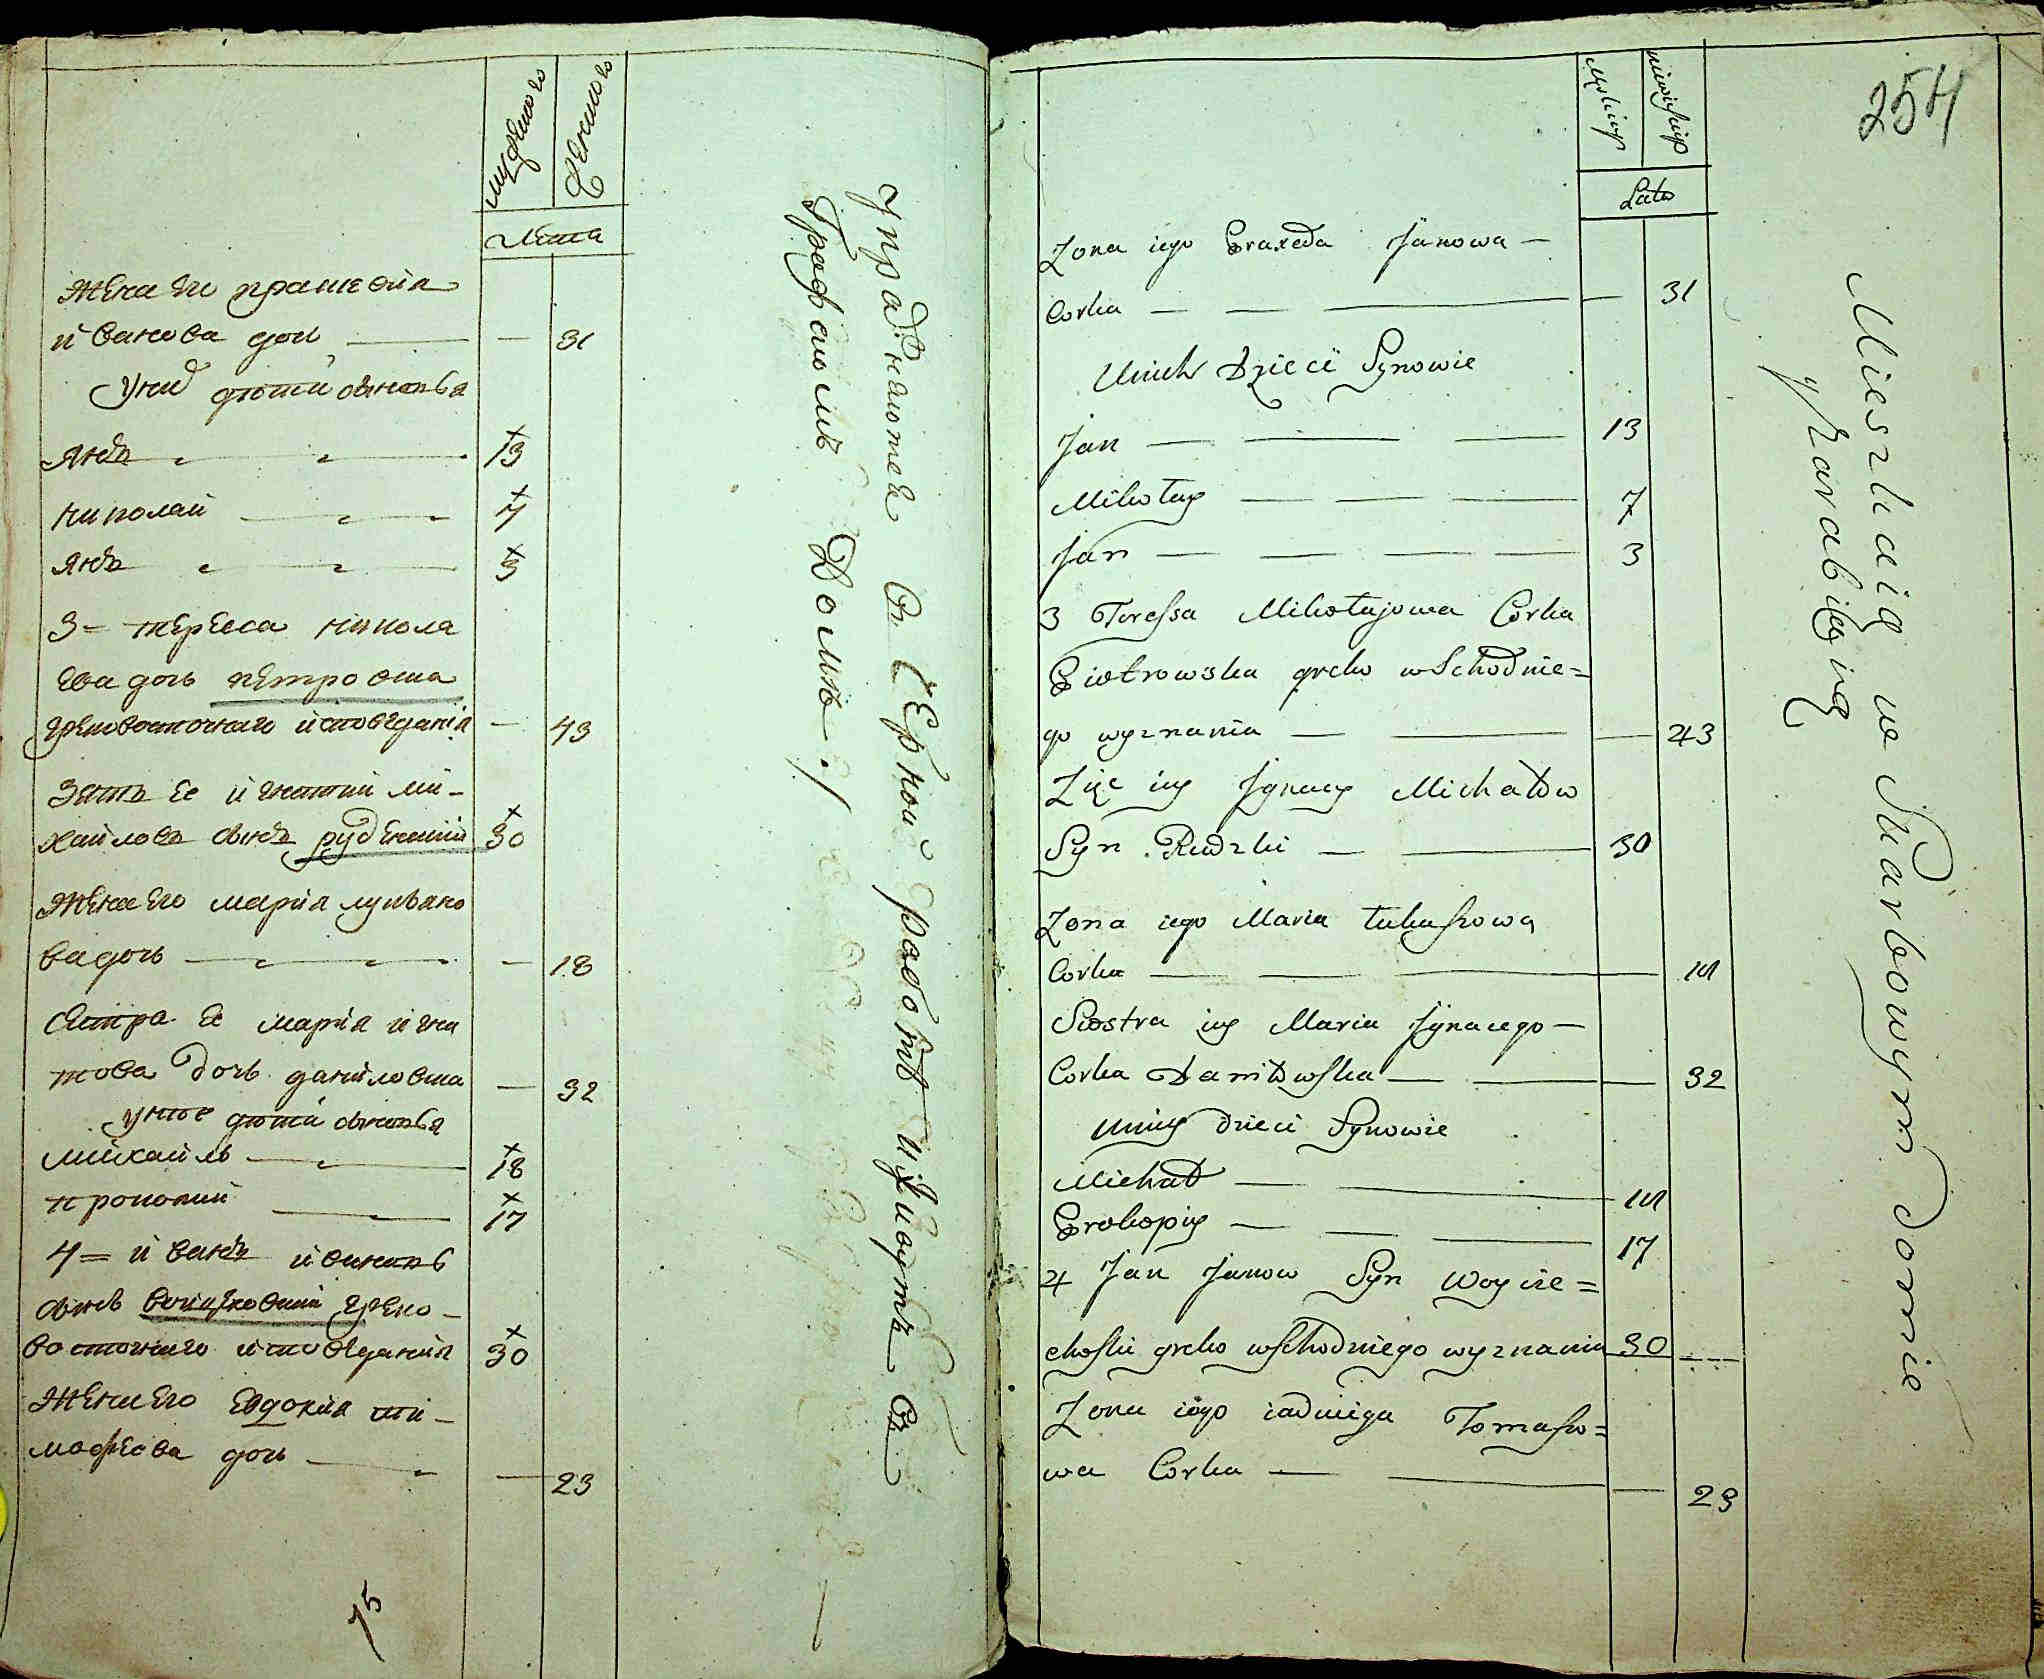 мужеска го
женска го
Лѣта
жена ег прашедіа
ивансва доч — — 31
У них дѣти сыновья
Янъ 13
Николай 7
Янъ 3
3 = тереса никола
ева дочь петровска
грековосточнаго исповеданія — 43
Зять ее игнатий ми-
хайловъ сынъ рудзкий 30
Жена его мария лукьяно
ва дочь — 18
сестра ее мария игна
това дочь даниловска — 32
у нее дѣти сыновья
михайлъ 18
прокопий 17
4 = иванъ ивановъ
сынъ войцеховский греко-
восточнаго исповеданія 30
Жена его евдокия ти-
мофеева дочь — 23
75
упражняются в черной работѣ и живутъ въ
графскомъ Домѣ./
254
Męskiego
niewieskiego
Lata
Zona iego Praxeda Janowa —
Corka — — — — 31
U nich Dzieci Synowie
Jan — — — 13
Mikołay — — — 7
Jan — — — — 3
3 Teressa Mikołajowa Corka
Piotrowska greko wschodnie=
go wyznania — — — 43
Zięć iey Jgnacy Michałow
Syn Rudzki — — 30
Zona iego Maria Łukaszowa
Corka — — — — 18
Siostra iey Maria Jgnacego —
Corka Daniłowska — — — 32
u niey dzieci Synowie
Michał — — 18
Prokopiy — — — 17
4 Jan Janow Syn Woycie=
choski greko wschodniego wyznania 30
Zona iego iadwiga Tomaszo=
wa Corka — — — 23
Mieszkaią w Skarbowym domie
y zarabiaią